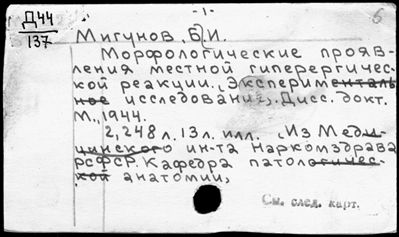 -1-
Д44
137
Мигунов, Б.И.
Морфологические прояв-
ления местной гиперергичес-
кой реакции. (Эксперименталь-
ное исследование). Дисс. докт.
М., 1944.
2,248 л. 13 л. илл. (Из Меди-
цинского ин-та Наркомздрава
РСФСР. Кафедра патологичес-
кой анатомии)
См. след. карт.